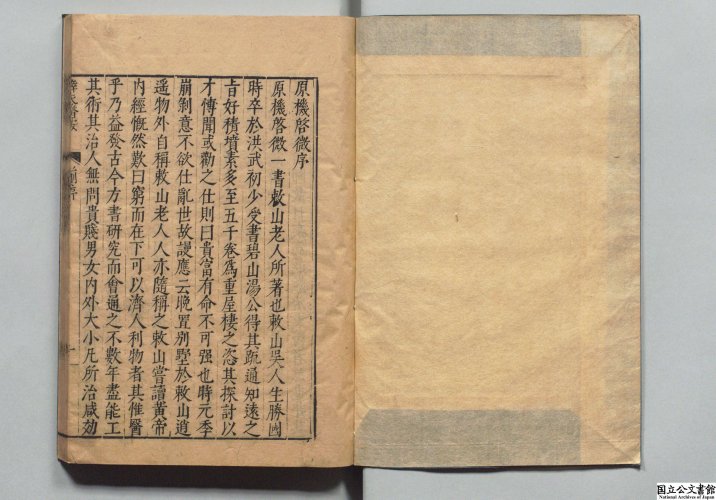 原機啓微序
原機啓微一書敕山老人所著也敕山吳人生勝國
時卒於洪武初少受書碧山湯公得其疏通知遠之
旨好積墳素多至五千卷爲重屋棲之恣其探討以
才傳聞或勸之仕則曰貴富有命不可强也時元季
崩剝意不欲仕亂世故謾應云晩置别墅於敕山逍
遥物外自稱敕山老人人亦隨稱之敕山嘗讀黄帝
内經慨然歎曰窮而在下可以濟人利物者其惟醫
乎乃益發古今方書研究而會通之不數年盡能工
其術其治人無問貴賤男女内外大小凡所治咸効
一
国立公文書館
National Archives of Japan